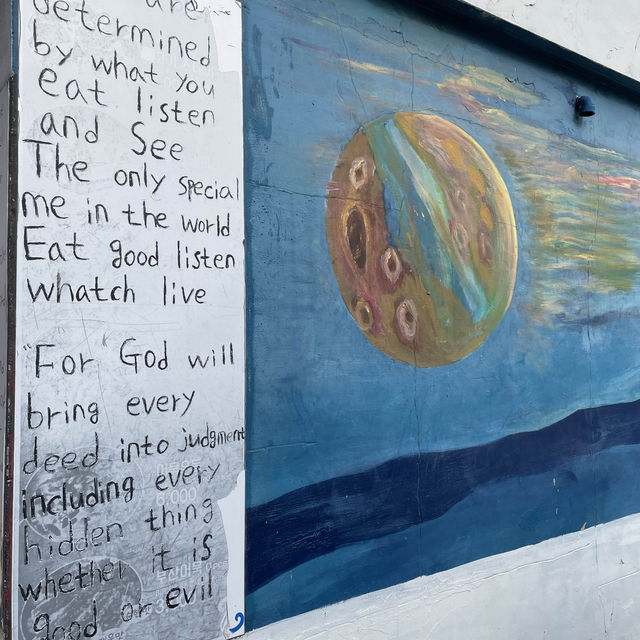 are
determined
by what you
eat listen
and See
The only special
me in the world
Eat good listen
whatch live
"For God will
bring every
deed into judgment
including every
hidden thing
whether it is
good or evil